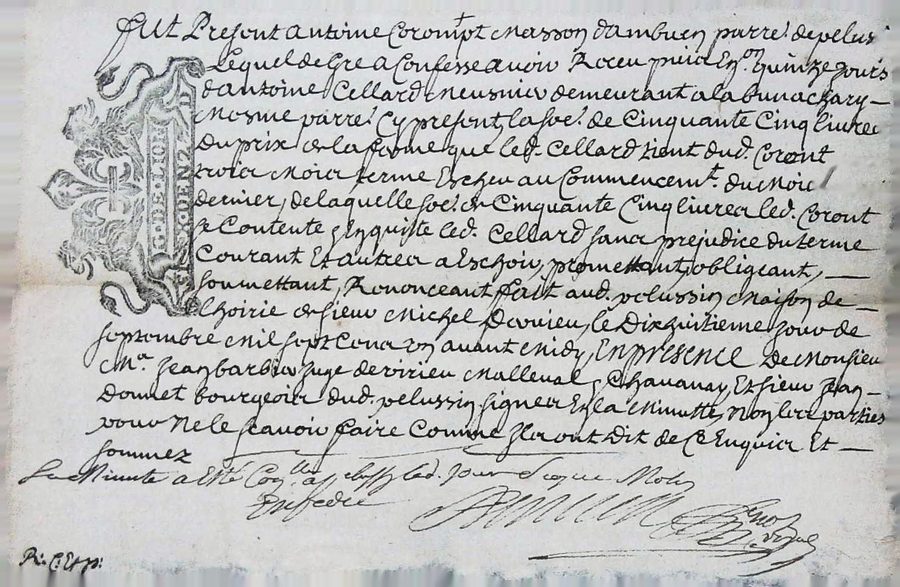 fut Present antoine Corompt masson dambuen parre! de pelus
Lequel de Gre a Confesse avoir Receu puis En.on quinze jours
dantoine Cellard meusnier demeurant a la bunachary -
mesme parre! Cy present, la so.e de Cinquante Cinq livres
du prix de la ferme que led. Cellard tient dud. Coront
trois mois terme Escheu au Commencemt. du mois
dernier, de laquelle so.e de Cinquante Cinq livres led. Coront
Contente Enquiste led. Cellard sans prejudice du terme
Courant Et autres a Eschoir, promettant, obligeant, —
soumettant, Renonceant fait aud. pelussin maison de
lhoirie de sieur Michel Dervieu, le Dixhuitieme jour de
septembre mil sept Cens un avant midy, En presence De Monsieu
Me. Jean barbier juge de virieu malleval, Chavanay, Et sieur Jean
Donnet bourgeois dud. pelussin signes En la minutte, Non les parties
pour Ne le scavoir faire Comme Ils ont dit de Ce Enquis Et —
sommez
La Minute a esté Con.llee a led. jour
Expedie
G. DE. LION
SIX. DEN.